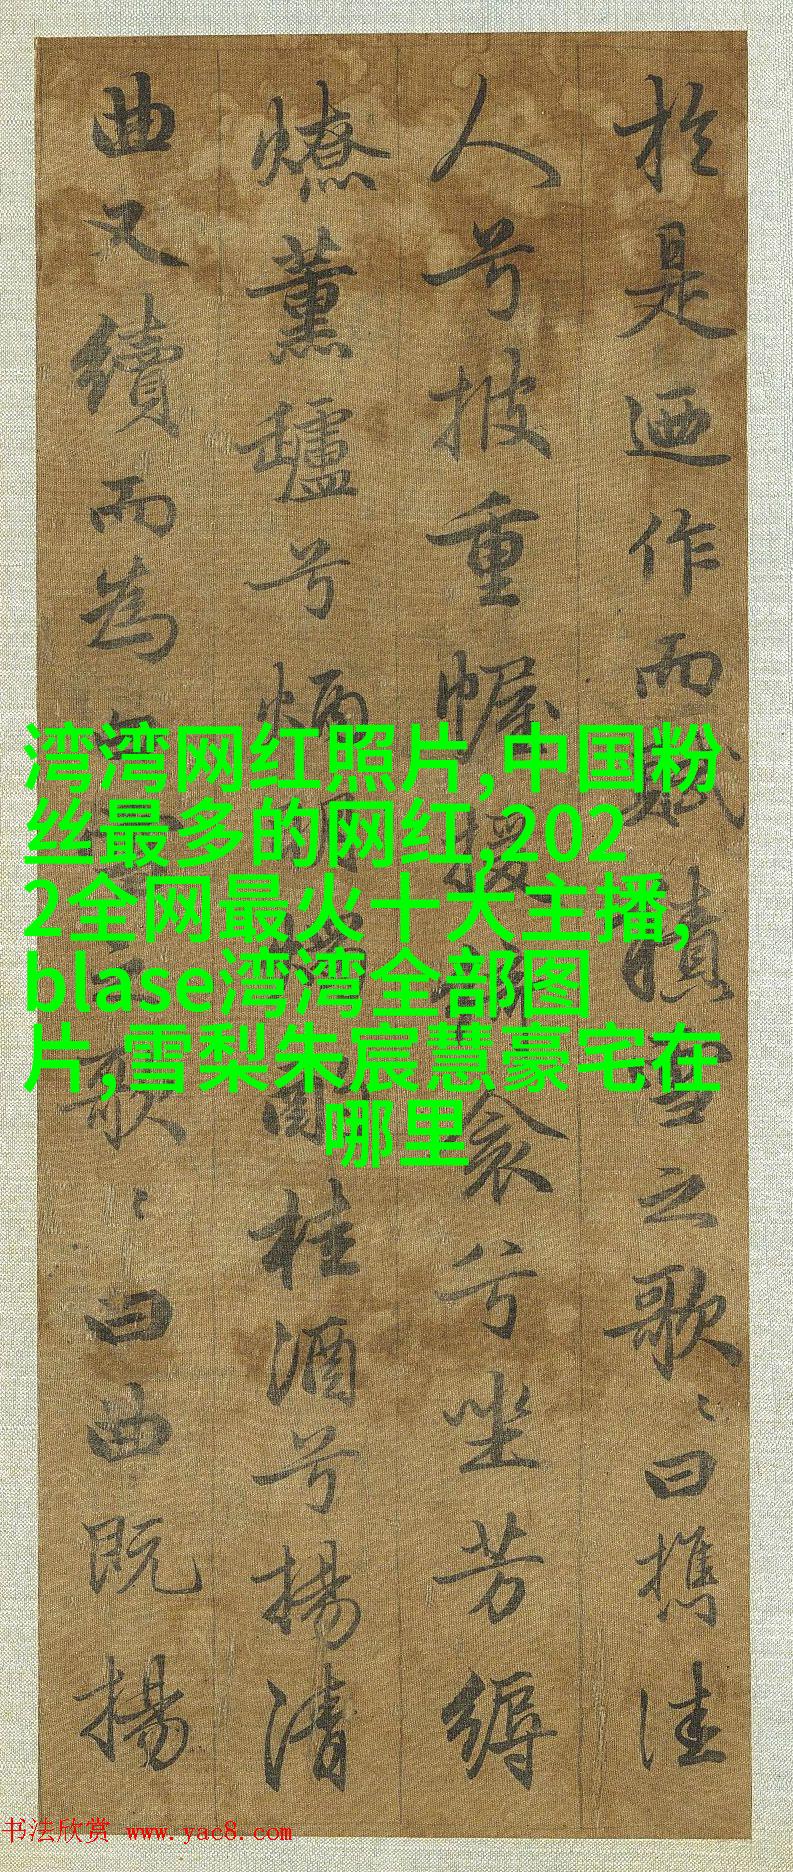 於是迺作而賦積雪之歌〻曰攜佳
人兮披重幄援衾兮坐芳縟
燎薰兮酌桂酒兮揚清
曲又續而為歌〻曰曲既揚
湾湾网红照片,中国粉
丝最多的网红,202
2全网最火十大主播,
blase湾湾全部图
片,雪梨朱宸慧豪宅在
哪里
书法欣赏 www.yac8.com